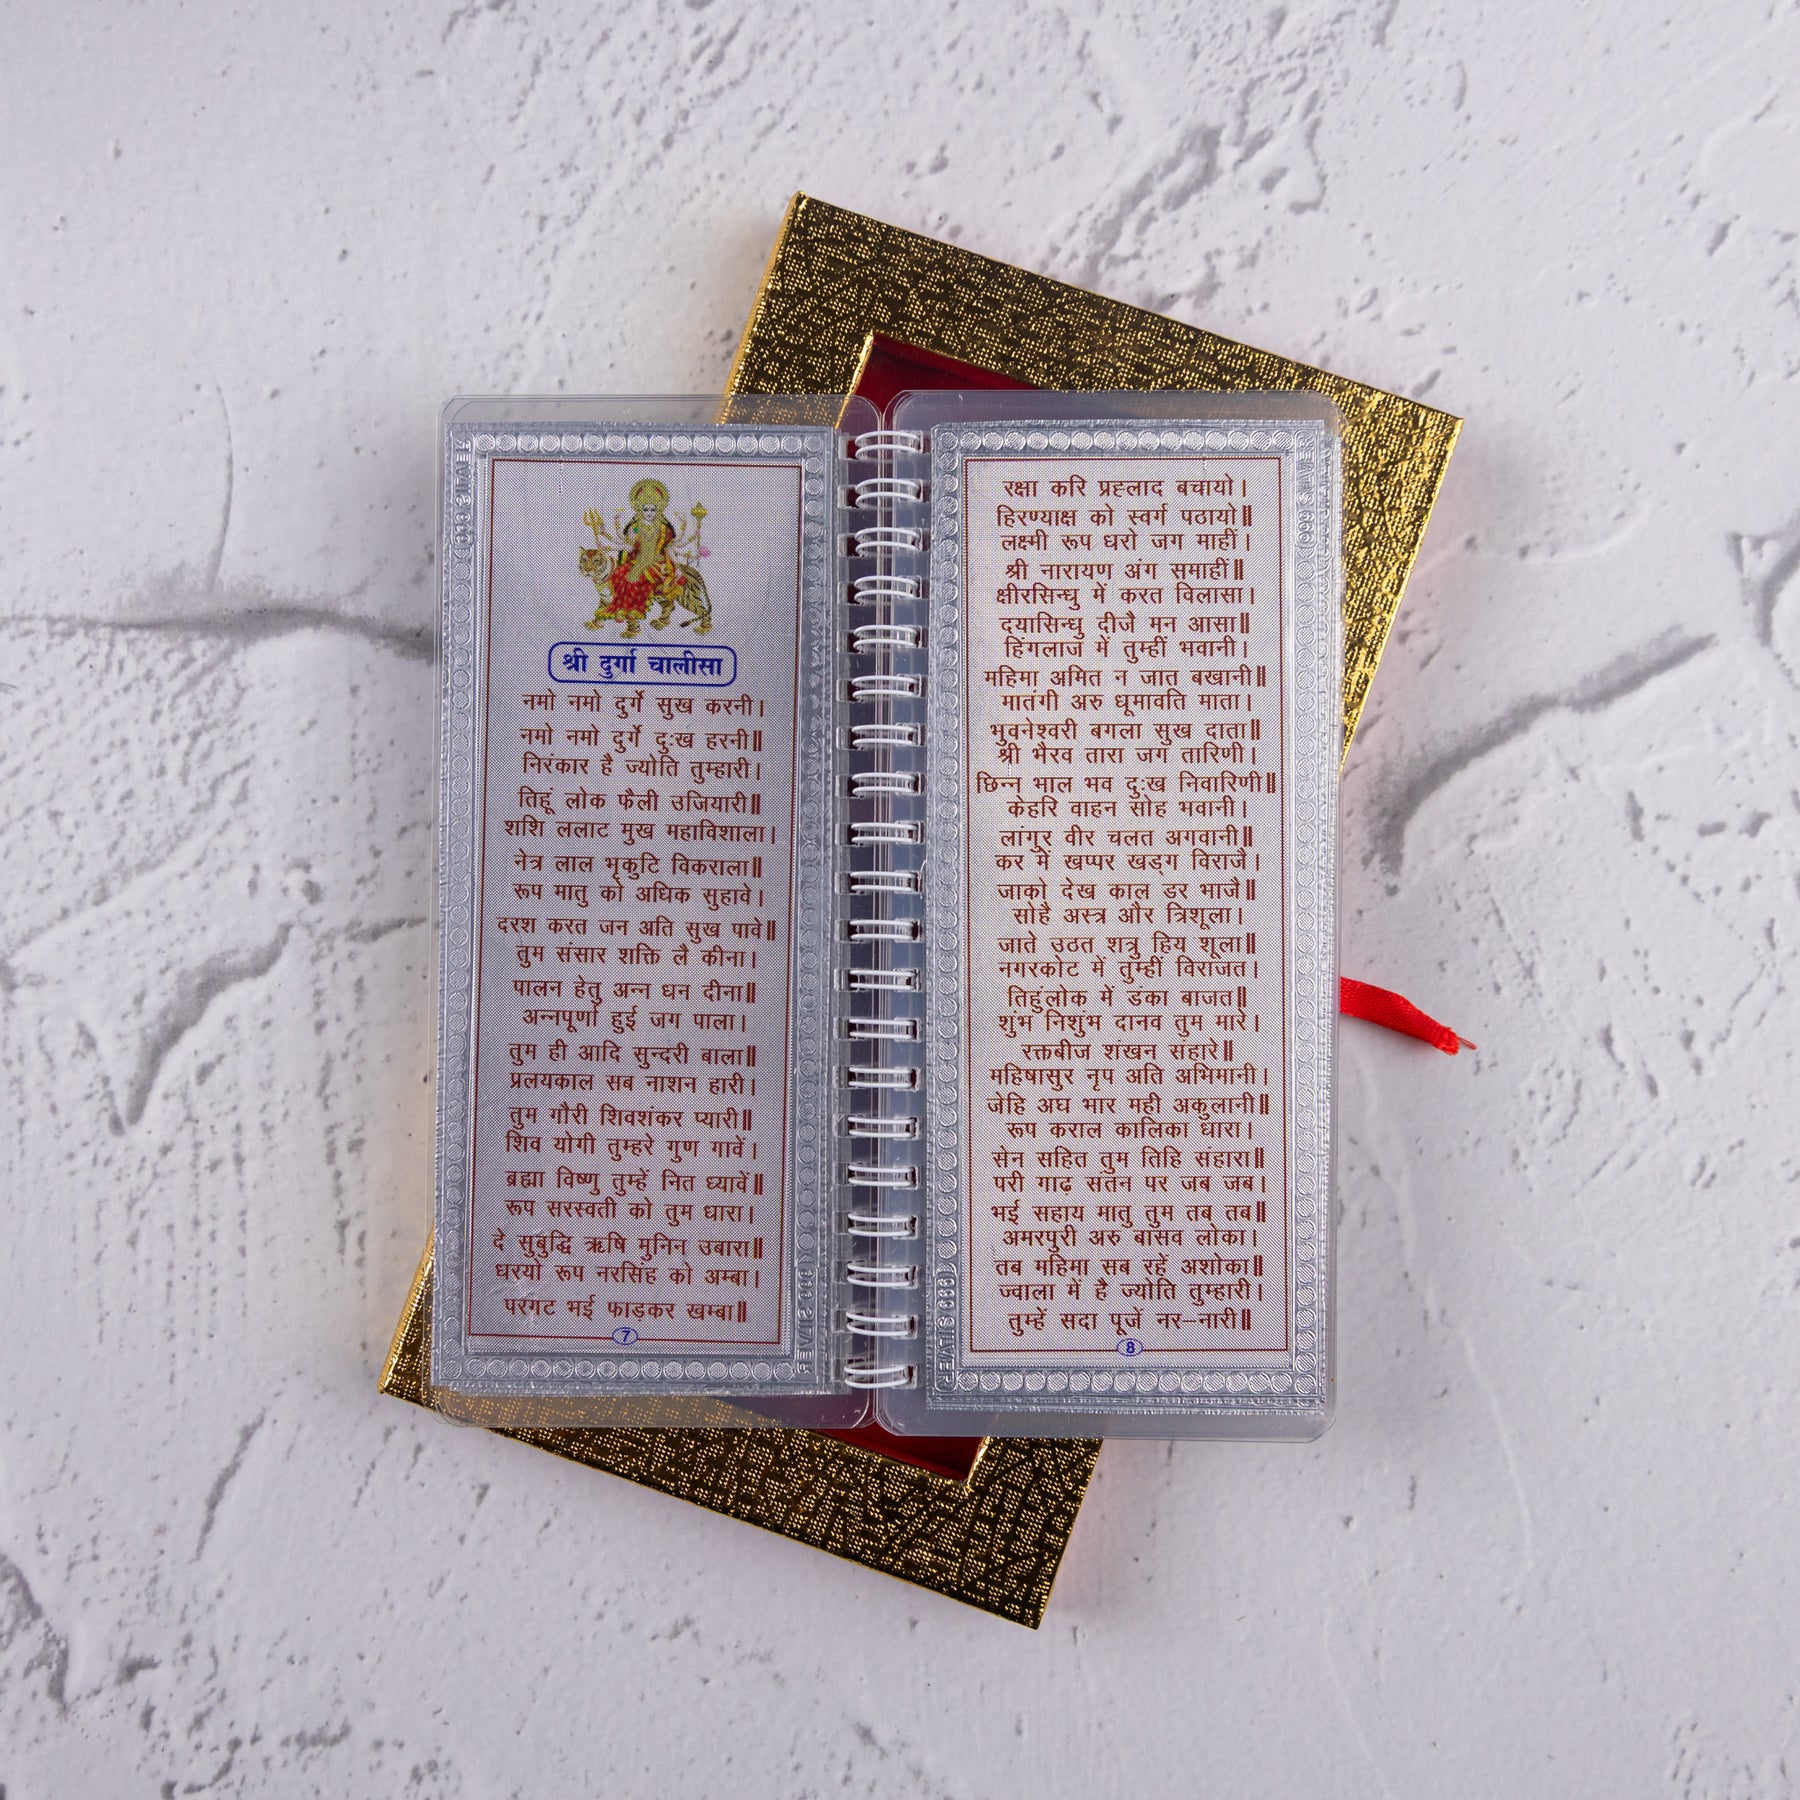 999 SILVER
श्री दुर्गा चालीसा
नमो नमो दुर्गे सुख करनी।
नमो नमो दुर्गे दुःख हरनी॥
निरंकार है ज्योति तुम्हारी।
तिहूं लोक फैली उजियारी॥
शशि ललाट मुख महाविशाला।
नेत्र लाल भृकुटि विकराला॥
रूप मातु को अधिक सुहावे।
दरश करत जन अति सुख पावे॥
तुम संसार शक्ति लै कीना।
पालन हेतु अन्न धन दीना॥
अन्नपूर्णा हुई जग पाला।
तुम ही आदि सुन्दरी बाला॥
प्रलयकाल सब नाशन हारी।
तुम गौरी शिवशंकर प्यारी॥
शिव योगी तुम्हरे गुण गावें।
ब्रह्मा विष्णु तुम्हें नित ध्यावें॥
रूप सरस्वती को तुम धारा।
दे सुबुद्धि ऋषि मुनिन उबारा॥
धरयो रूप नरसिंह को अम्बा।
परगट भई फाड़कर खम्बा॥
7
999 SILVER
999 SILVER
रक्षा करि प्रह्लाद बचायो।
हिरण्याक्ष को स्वर्ग पठायो॥
लक्ष्मी रूप धरो जग माहीं।
श्री नारायण अंग समाहीं॥
क्षीरसिन्धु में करत विलासा।
दयासिन्धु दीजै मन आसा॥
हिंगलाज में तुम्हीं भवानी।
महिमा अमित न जात बखानी॥
मातंगी अरु धूमावति माता।
भुवनेश्वरी बगला सुख दाता॥
श्री भैरव तारा जग तारिणी।
छिन्न भाल भव दुःख निवारिणी॥
केहरि वाहन सोह भवानी।
लांगुर वीर चलत अगवानी॥
कर में खप्पर खड्ग विराजै।
जाको देख काल डर भाजै॥
सोहै अस्त्र और त्रिशूला।
जाते उठत शत्रु हिय शूला॥
नगरकोट में तुम्हीं विराजत।
तिहुंलोक में डंका बाजत॥
शुंभ निशुंभ दानव तुम मारे।
रक्तबीज शंखन संहारे॥
महिषासुर नृप अति अभिमानी।
जेहि अघ भार मही अकुलानी॥
रूप कराल कालिका धारा।
सेन सहित तुम तिहि संहारा॥
परी गाढ़ संतन पर जब जब।
भई सहाय मातु तुम तब तब॥
अमरपुरी अरु बासव लोका।
तब महिमा सब रहें अशोका॥
ज्वाला में है ज्योति तुम्हारी।
तुम्हें सदा पूजें नर-नारी॥
8
999 SILVER